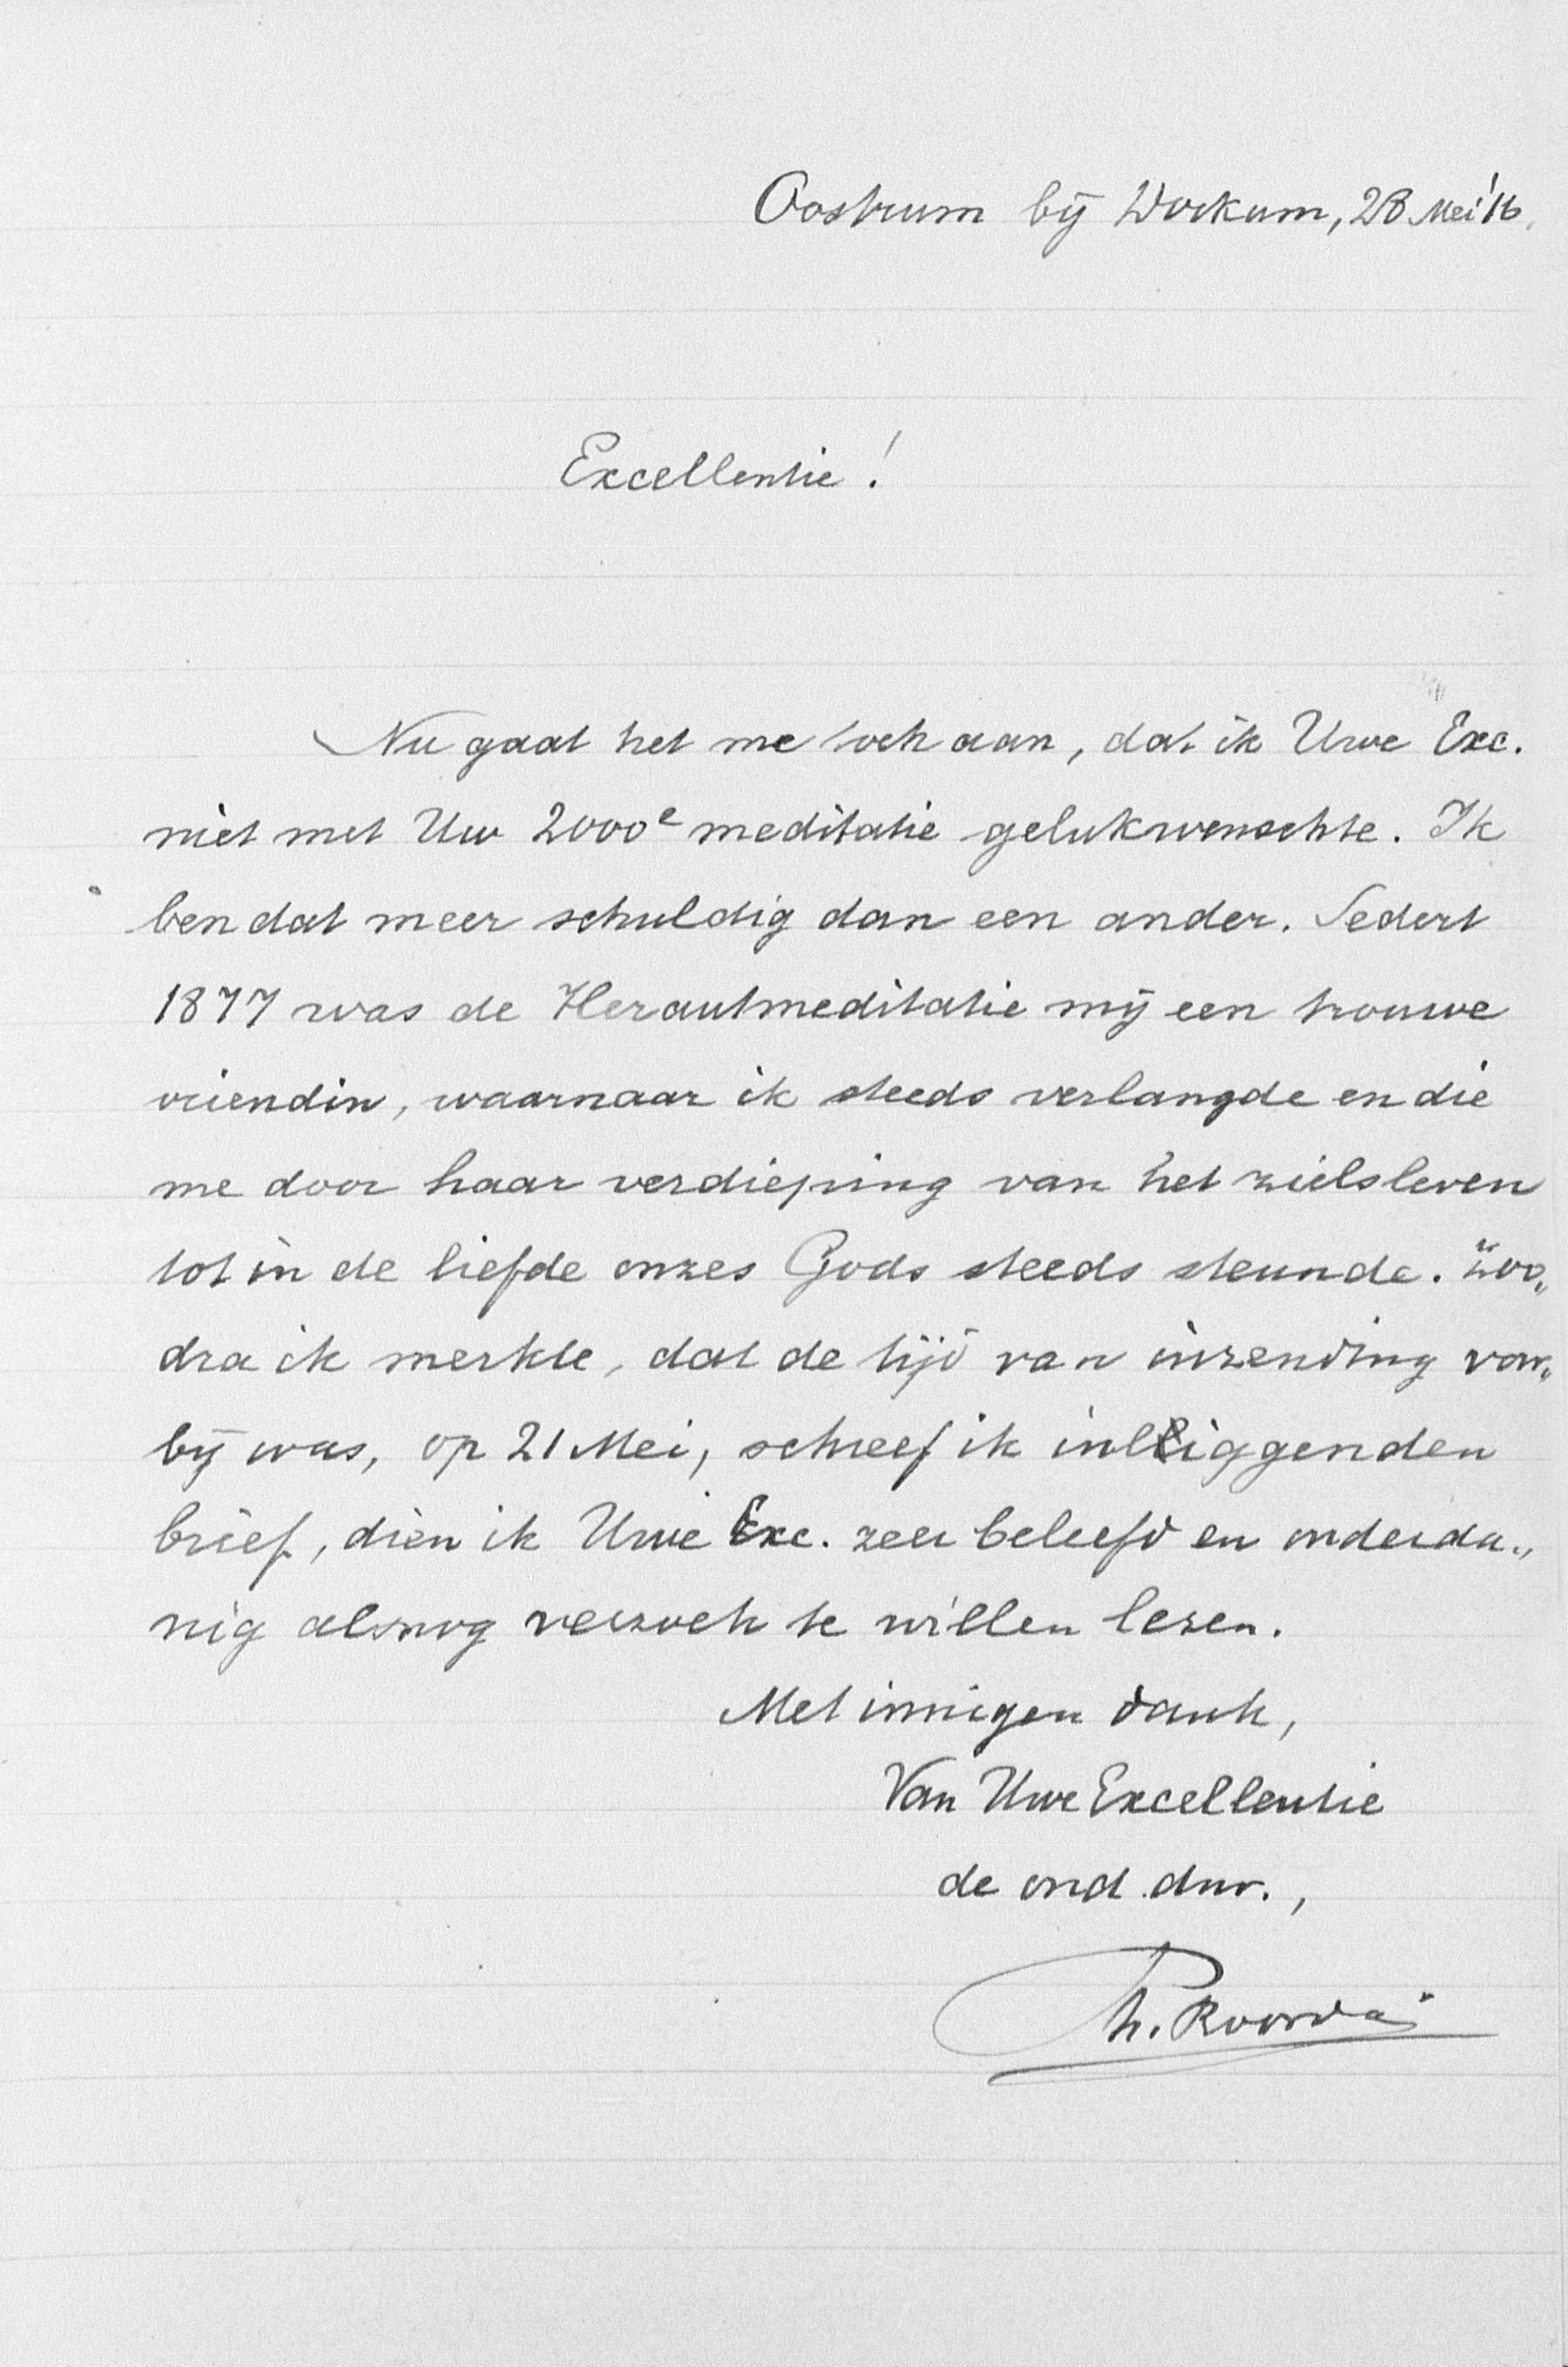 Oostrum bij Dockum, 28 Mei '16.
Excellentie!
Nu gaat het me toch aan, dat ik Uwe Exc.
niet met Uw 2000e meditatie gelukwenschte. Ik
ben dat meer schuldig dan een ander. Sedert
1877 was de Herautmeditatie mij een trouwe
vriendin, waarnaar ik steeds verlangde en die
me door haar verdieping van het zielsleven
tot in de liefde onzes Gods steeds steunde. Zoo„
dra ik merkte, dat de tijd van inzending voor„
bij was, op 21 Mei, schreef ik inliggenden
brief, dien ik Uwe Exc. zeer beleefd en onderda„
nig alsnog verzoek te willen lezen.
Met innigen dank,
Van Uwe Excellentie
de ond. dnr.,
Th. Roorda